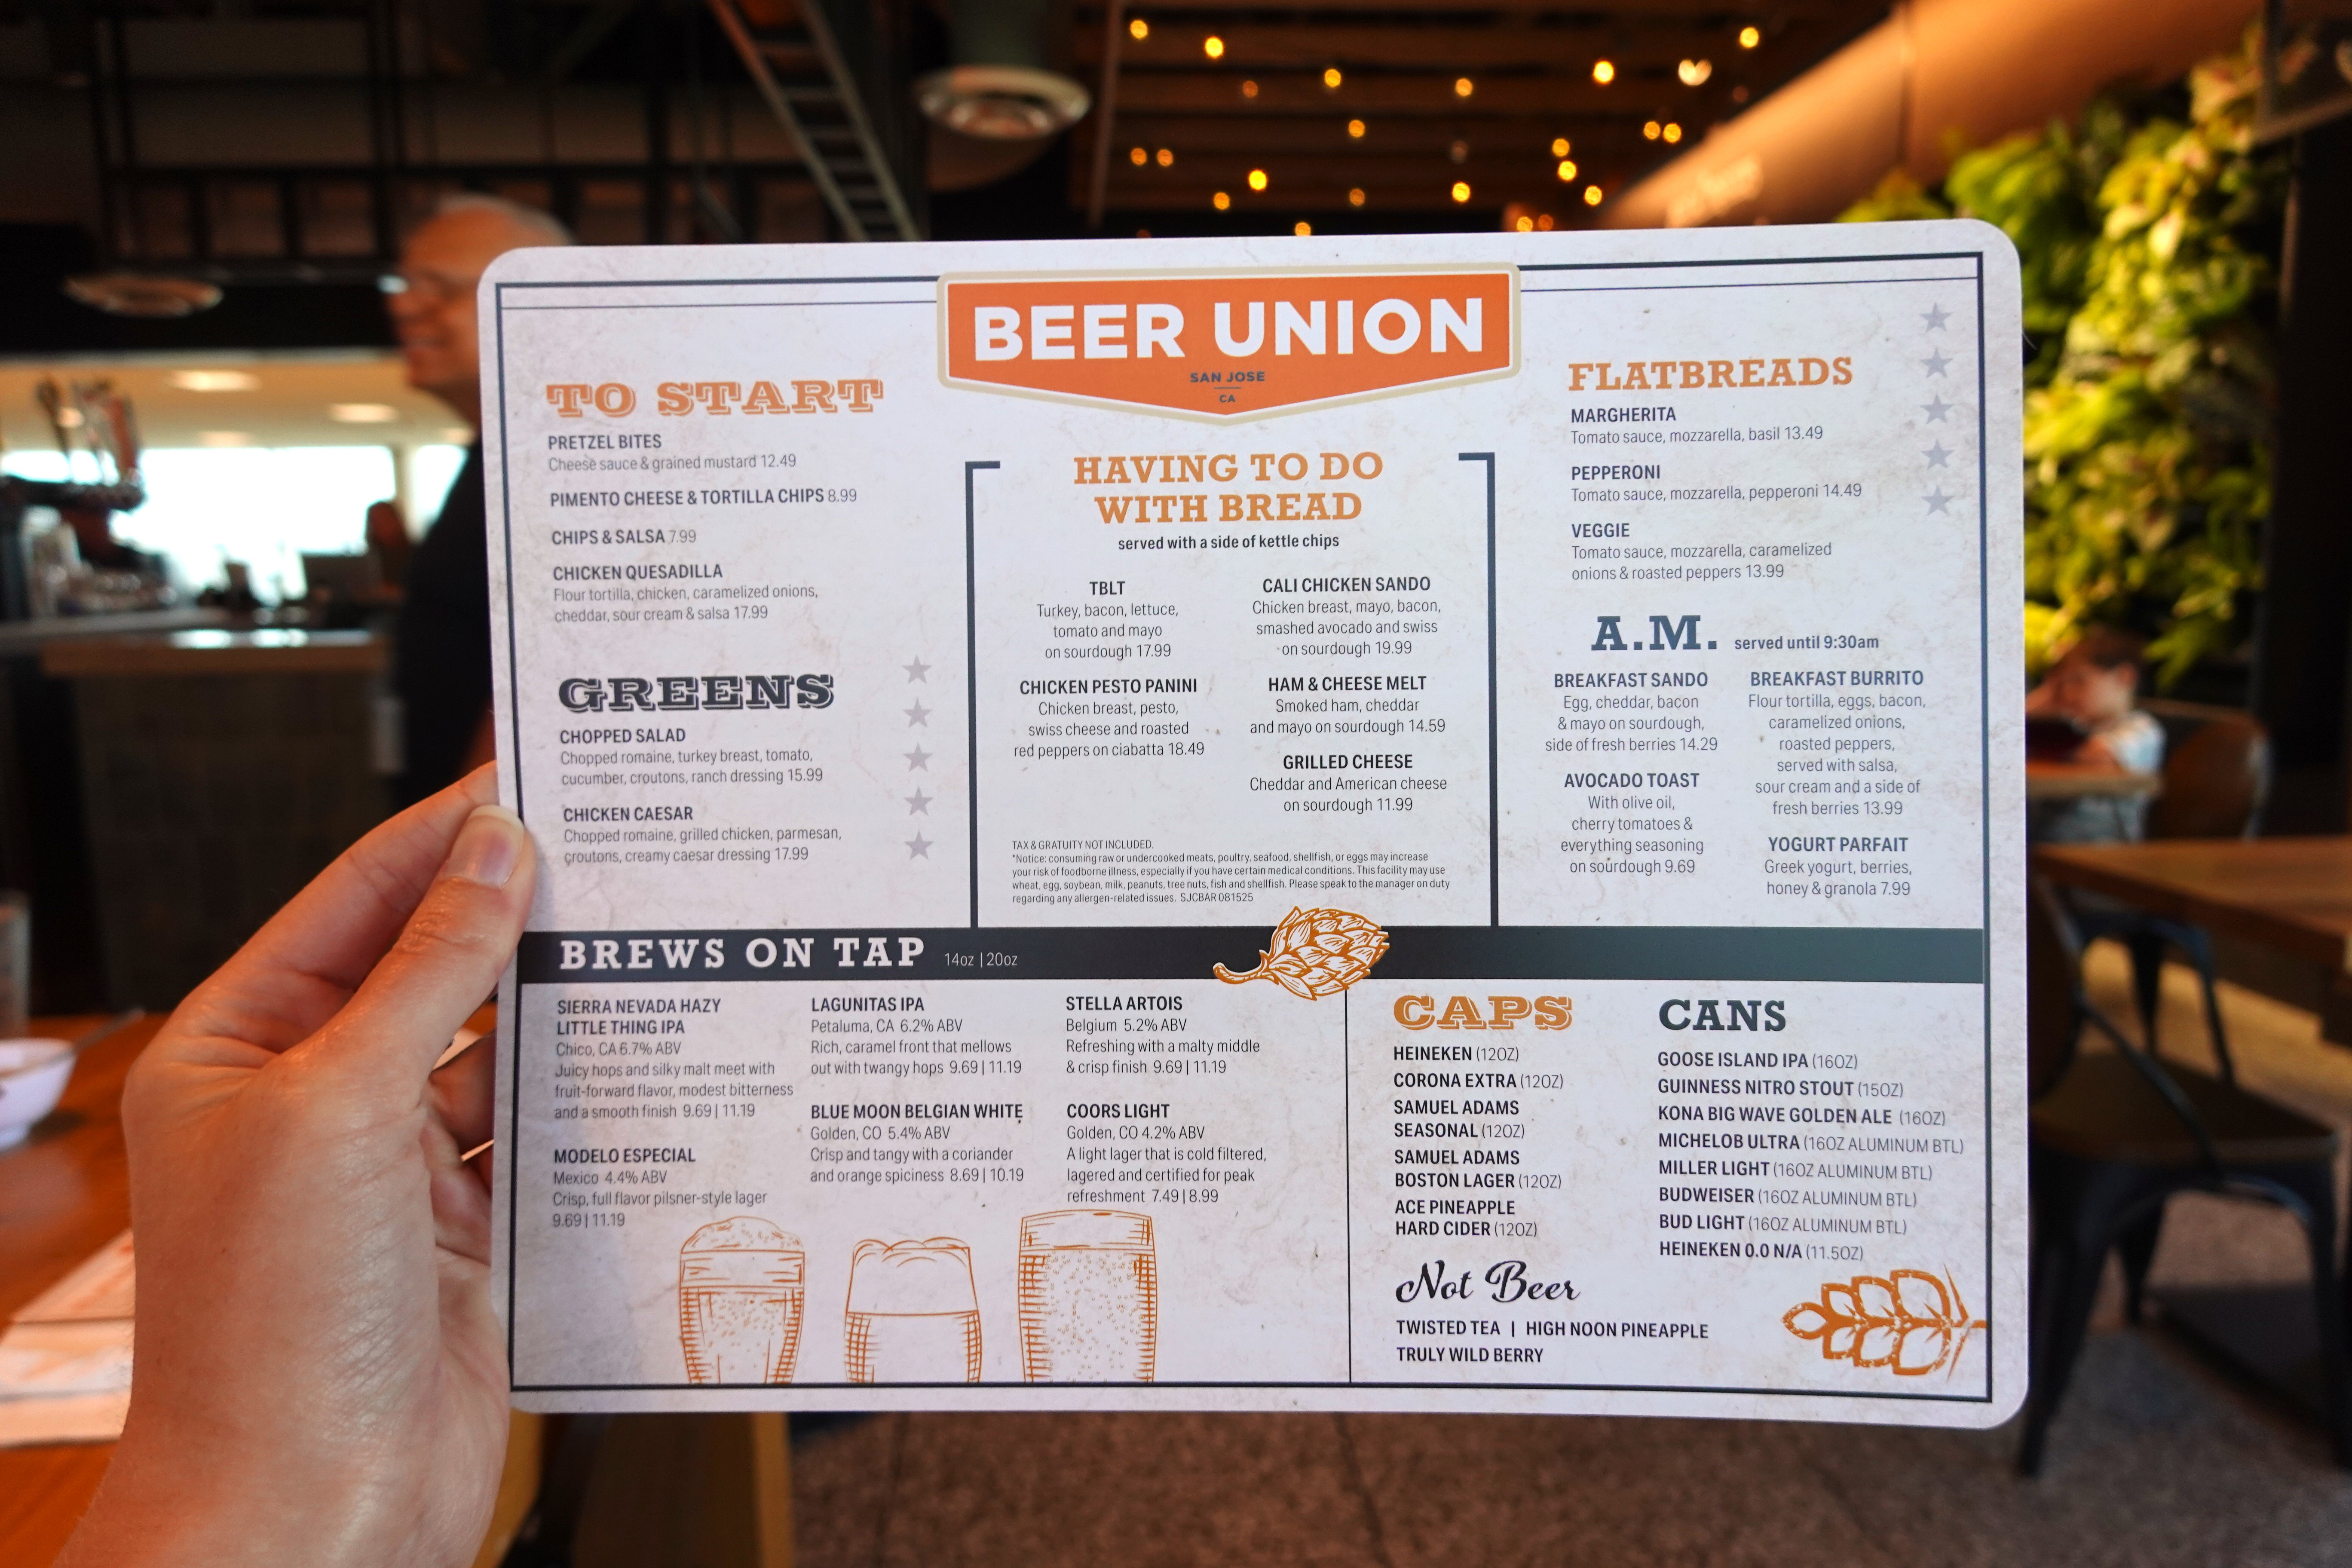 BEER UNION
SAN JOSE
CA
TO START
PRETZEL BITES
Cheese sauce & grained mustard 12.49
PIMENTO CHEESE & TORTILLA CHIPS 8.99
CHIPS & SALSA 7.99
CHICKEN QUESADILLA
Flour tortilla, chicken, caramelized onions,
cheddar, sour cream & salsa 17.99
GREENS
CHOPPED SALAD
Chopped romaine, turkey breast, tomato,
cucumber, croutons, ranch dressing 15.99
CHICKEN CAESAR
Chopped romaine, grilled chicken, parmesan,
croutons, creamy caesar dressing 17.99
HAVING TO DO
WITH BREAD
served with a side of kettle chips
TBLT
Turkey, bacon, lettuce,
tomato and mayo
on sourdough 17.99
CHICKEN PESTO PANINI
Chicken breast, pesto,
swiss cheese and roasted
red peppers on ciabatta 18.49
CALI CHICKEN SANDO
Chicken breast, mayo, bacon,
smashed avocado and swiss
on sourdough 19.99
HAM & CHEESE MELT
Smoked ham, cheddar
and mayo on sourdough 14.59
GRILLED CHEESE
Cheddar and American cheese
on sourdough 11.99
TAX & GRATUITY NOT INCLUDED.
*Notice: consuming raw or undercooked meats, poultry, seafood, shellfish, or eggs may increase
your risk of foodborne illness, especially if you have certain medical conditions. This facility may use
wheat, egg, soybean, milk, peanuts, tree nuts, fish and shellfish. Please speak to the manager on duty
regarding any allergen-related issues. SJCBAR 081525
FLATBREADS
MARGHERITA
Tomato sauce, mozzarella, basil 13.49
PEPPERONI
Tomato sauce, mozzarella, pepperoni 14.49
VEGGIE
Tomato sauce, mozzarella, caramelized
onions & roasted peppers 13.99
A.M. served until 9:30am
BREAKFAST SANDO
Egg, cheddar, bacon
& mayo on sourdough,
side of fresh berries 14.29
AVOCADO TOAST
With olive oil,
cherry tomatoes &
everything seasoning
on sourdough 9.69
BREAKFAST BURRITO
Flour tortilla, eggs, bacon,
caramelized onions,
roasted peppers,
served with salsa,
sour cream and a side of
fresh berries 13.99
YOGURT PARFAIT
Greek yogurt, berries,
honey & granola 7.99
BREWS ON TAP 14oz | 20oz
SIERRA NEVADA HAZY
LITTLE THING IPA
Chico, CA 6.7% ABV
Juicy hops and silky malt meet with
fruit-forward flavor, modest bitterness
and a smooth finish 9.69 | 11.19
MODELO ESPECIAL
Mexico 4.4% ABV
Crisp, full flavor pilsner-style lager
9.69 | 11.19
LAGUNITAS IPA
Petaluma, CA 6.2% ABV
Rich, caramel front that mellows
out with twangy hops 9.69 | 11.19
BLUE MOON BELGIAN WHITE
Golden, CO 5.4% ABV
Crisp and tangy with a coriander
and orange spiciness 8.69 | 10.19
STELLA ARTOIS
Belgium 5.2% ABV
Refreshing with a malty middle
& crisp finish 9.69 | 11.19
COORS LIGHT
Golden, CO 4.2% ABV
A light lager that is cold filtered,
lagered and certified for peak
refreshment 7.49 | 8.99
CAPS
HEINEKEN (12OZ)
CORONA EXTRA (12OZ)
SAMUEL ADAMS
SEASONAL (12OZ)
SAMUEL ADAMS
BOSTON LAGER (12OZ)
ACE PINEAPPLE
HARD CIDER (12OZ)
CANS
GOOSE ISLAND IPA (16OZ)
GUINNESS NITRO STOUT (15OZ)
KONA BIG WAVE GOLDEN ALE (16OZ)
MICHELOB ULTRA (16OZ ALUMINUM BTL)
MILLER LIGHT (16OZ ALUMINUM BTL)
BUDWEISER (16OZ ALUMINUM BTL)
BUD LIGHT (16OZ ALUMINUM BTL)
HEINEKEN 0.0 N/A (11.5OZ)
Not Beer
TWISTED TEA | HIGH NOON PINEAPPLE
TRULY WILD BERRY